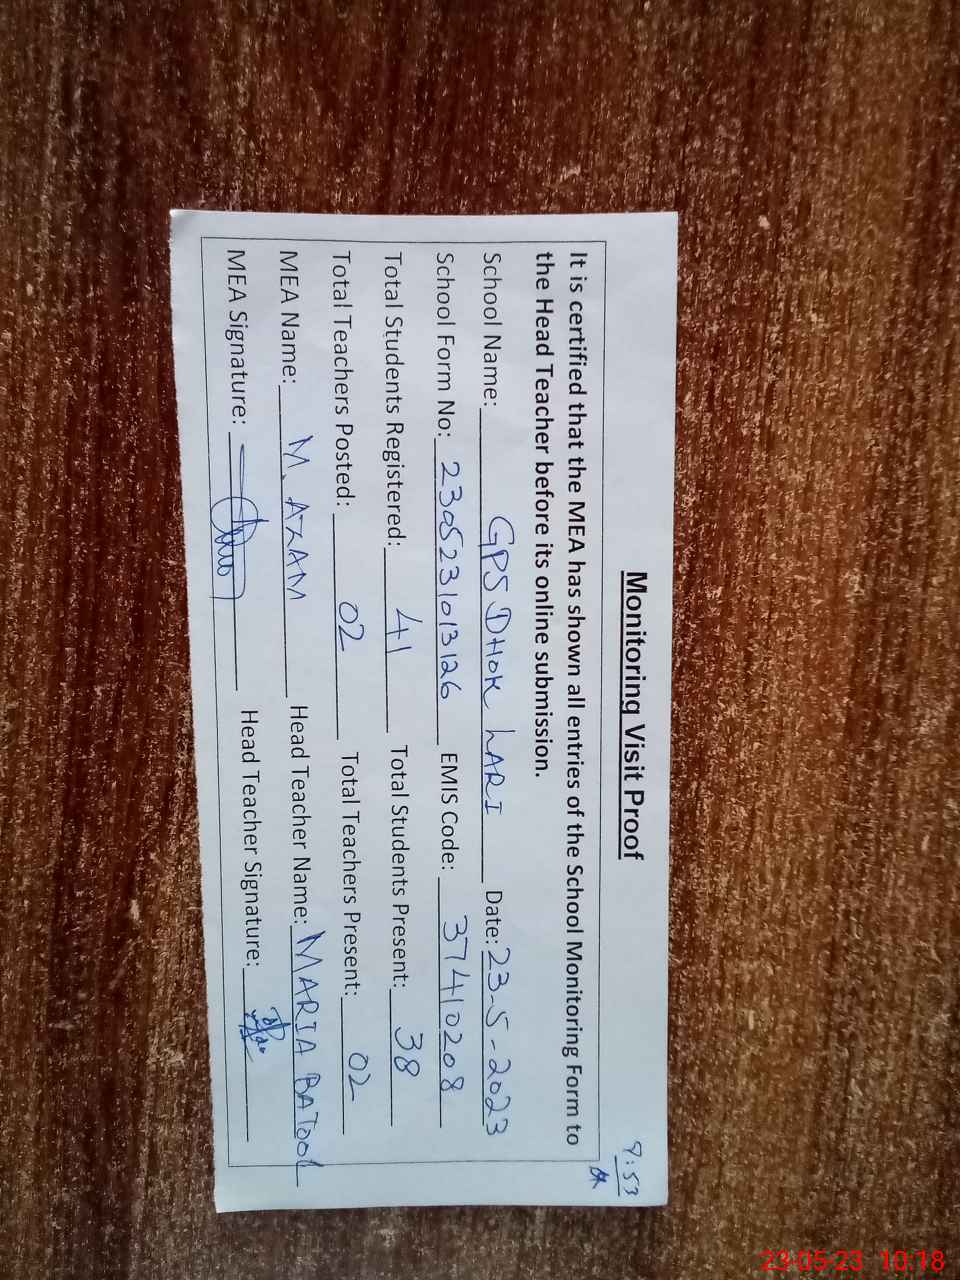 Monitoring Visit Proof
8:53
It is certified that the MEA has shown all entries of the School Monitoring Form to
the Head Teacher before its online submission.
School Name: GPS DHOK LARI Date: 23-5-2023
School Form No: 2305231013126 EMIS Code: 37410208
Total Students Registered: 41 Total Students Present: 38
Total Teachers Posted: 02 Total Teachers Present: 02
MEA Name: M. AZAM Head Teacher Name: MARIA BATOOL
MEA Signature: Head Teacher Signature:
23-05-23 10:18